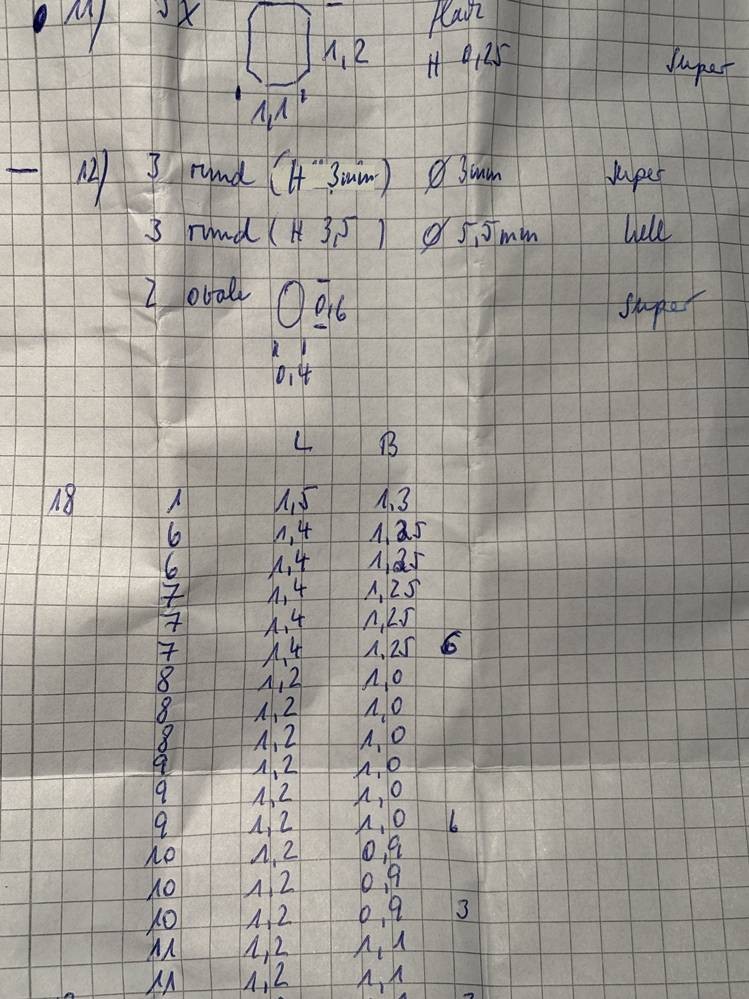 11) 5x flach
1,2 H 0,25 super
1,1
12) 3 rund (H 3mm) Ø 3mm super
3 rund (H 3,5) Ø 5,5mm hell
2 ovale 0,6 super
0,4
L B
18 1 1,5 1,3
6 1,4 1,25
6 1,4 1,25
7 1,4 1,25
7 1,4 1,25
7 1,4 1,25 6
8 1,2 1,0
8 1,2 1,0
8 1,2 1,0
9 1,2 1,0
9 1,2 1,0
9 1,2 1,0 6
10 1,2 0,9
10 1,2 0,9
10 1,2 0,9 3
11 1,2 1,1
11 1,2 1,1